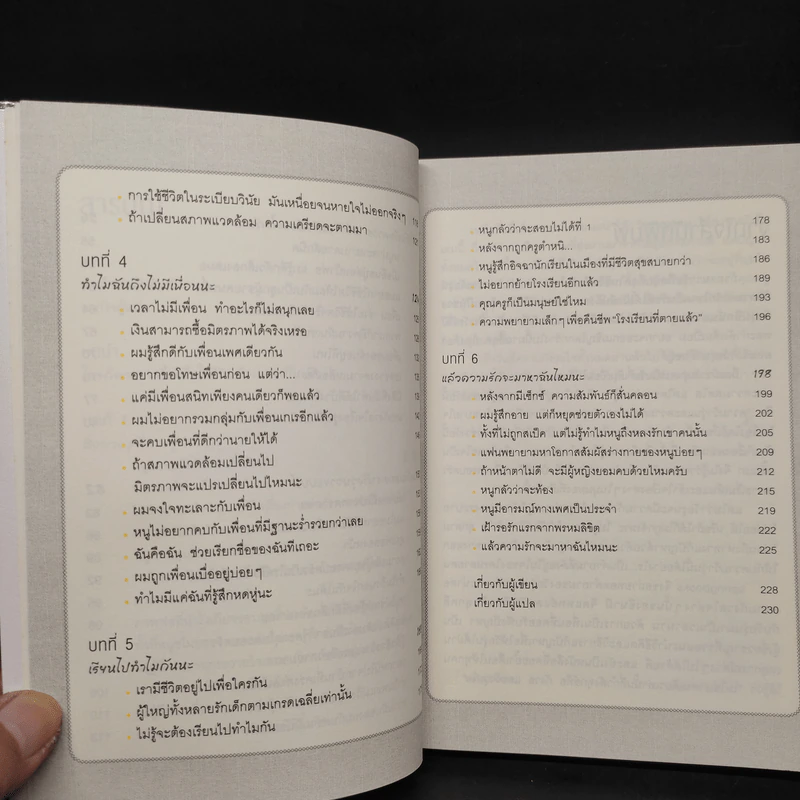 การใช้ชีวิตในระเบียบวินัย มันเหนื่อยจนหายใจไม่ออกจริงๆ
ถ้าเปลี่ยนสภาพแวดล้อม ความเครียดจะตามมา
บทที่ 4
ทำไมฉันถึงไม่มีเพื่อนนะ
เวลาไม่มีเพื่อน ทำอะไรก็ไม่สนุกเลย
เงินสามารถซื้อมิตรภาพได้จริงเหรอ
ผมรู้สึกดีกับเพื่อนเพศเดียวกัน
อยากขอโทษเพื่อนก่อน แต่ว่า...
แค่มีเพื่อนสนิทเพียงคนเดียวก็พอแล้ว
ผมไม่อยากรวมกลุ่มกับเพื่อนเกเรอีกแล้ว
จะคบเพื่อนที่ดีกว่านายให้ได้
ถ้าสภาพแวดล้อมเปลี่ยนไป
มิตรภาพจะแปรเปลี่ยนไปไหมนะ
ผมจงใจทะเลาะกับเพื่อน
หนูไม่อยากคบกับเพื่อนที่มีฐานะร่ำรวยกว่าเลย
ฉันคือฉัน ช่วยเรียกชื่อของฉันทีเถอะ
ผมถูกเพื่อนเบื่ออยู่บ่อยๆ
ทำไมมีแค่ฉันที่รู้สึกหดหู่นะ
บทที่ 5
เรียนไปทำไมกันนะ
เรามีชีวิตอยู่ไปเพื่อใครกัน
ผู้ใหญ่ทั้งหลายรักเด็กตามเกรดเฉลี่ยเท่านั้น
ไม่รู้จะต้องเรียนไปทำไมกัน
หนูกลัวว่าจะสอบไม่ได้ที่ 1 178
หลังจากถูกครูตำหนิ... 183
หนูรู้สึกอิจฉานักเรียนในเมืองที่มีชีวิตสุขสบายกว่า 186
ไม่อยากย้ายโรงเรียนอีกแล้ว 189
คุณครูก็เป็นมนุษย์ใช่ไหม 193
ความพยายามเล็กๆ เพื่อคืนชีพ “โรงเรียนที่ตายแล้ว” 196
บทที่ 6
แล้วความรักจะมาหาฉันไหมนะ 198
หลังจากมีเซ็กซ์ ความสัมพันธ์ก็สั่นคลอน 199
ผมรู้สึกอาย แต่ก็หยุดช่วยตัวเองไม่ได้ 202
ทั้งที่ไม่ถูกสเป็ค แต่ไม่รู้ทำไมหนูถึงหลงรักเขาคนนั้น 205
แฟนพยายามหาโอกาสสัมผัสร่างกายของหนูบ่อยๆ 209
ถ้าหน้าตาไม่ดี จะมีผู้หญิงยอมคบด้วยไหมครับ 212
หนูกลัวว่าจะท้อง 215
หนูมีอารมณ์ทางเพศเป็นประจำ 219
เฝ้ารอรักแรกจากพรหมลิขิต 222
แล้วความรักจะมาหาฉันไหมนะ 225
เกี่ยวกับผู้เขียน 228
เกี่ยวกับผู้แปล 230